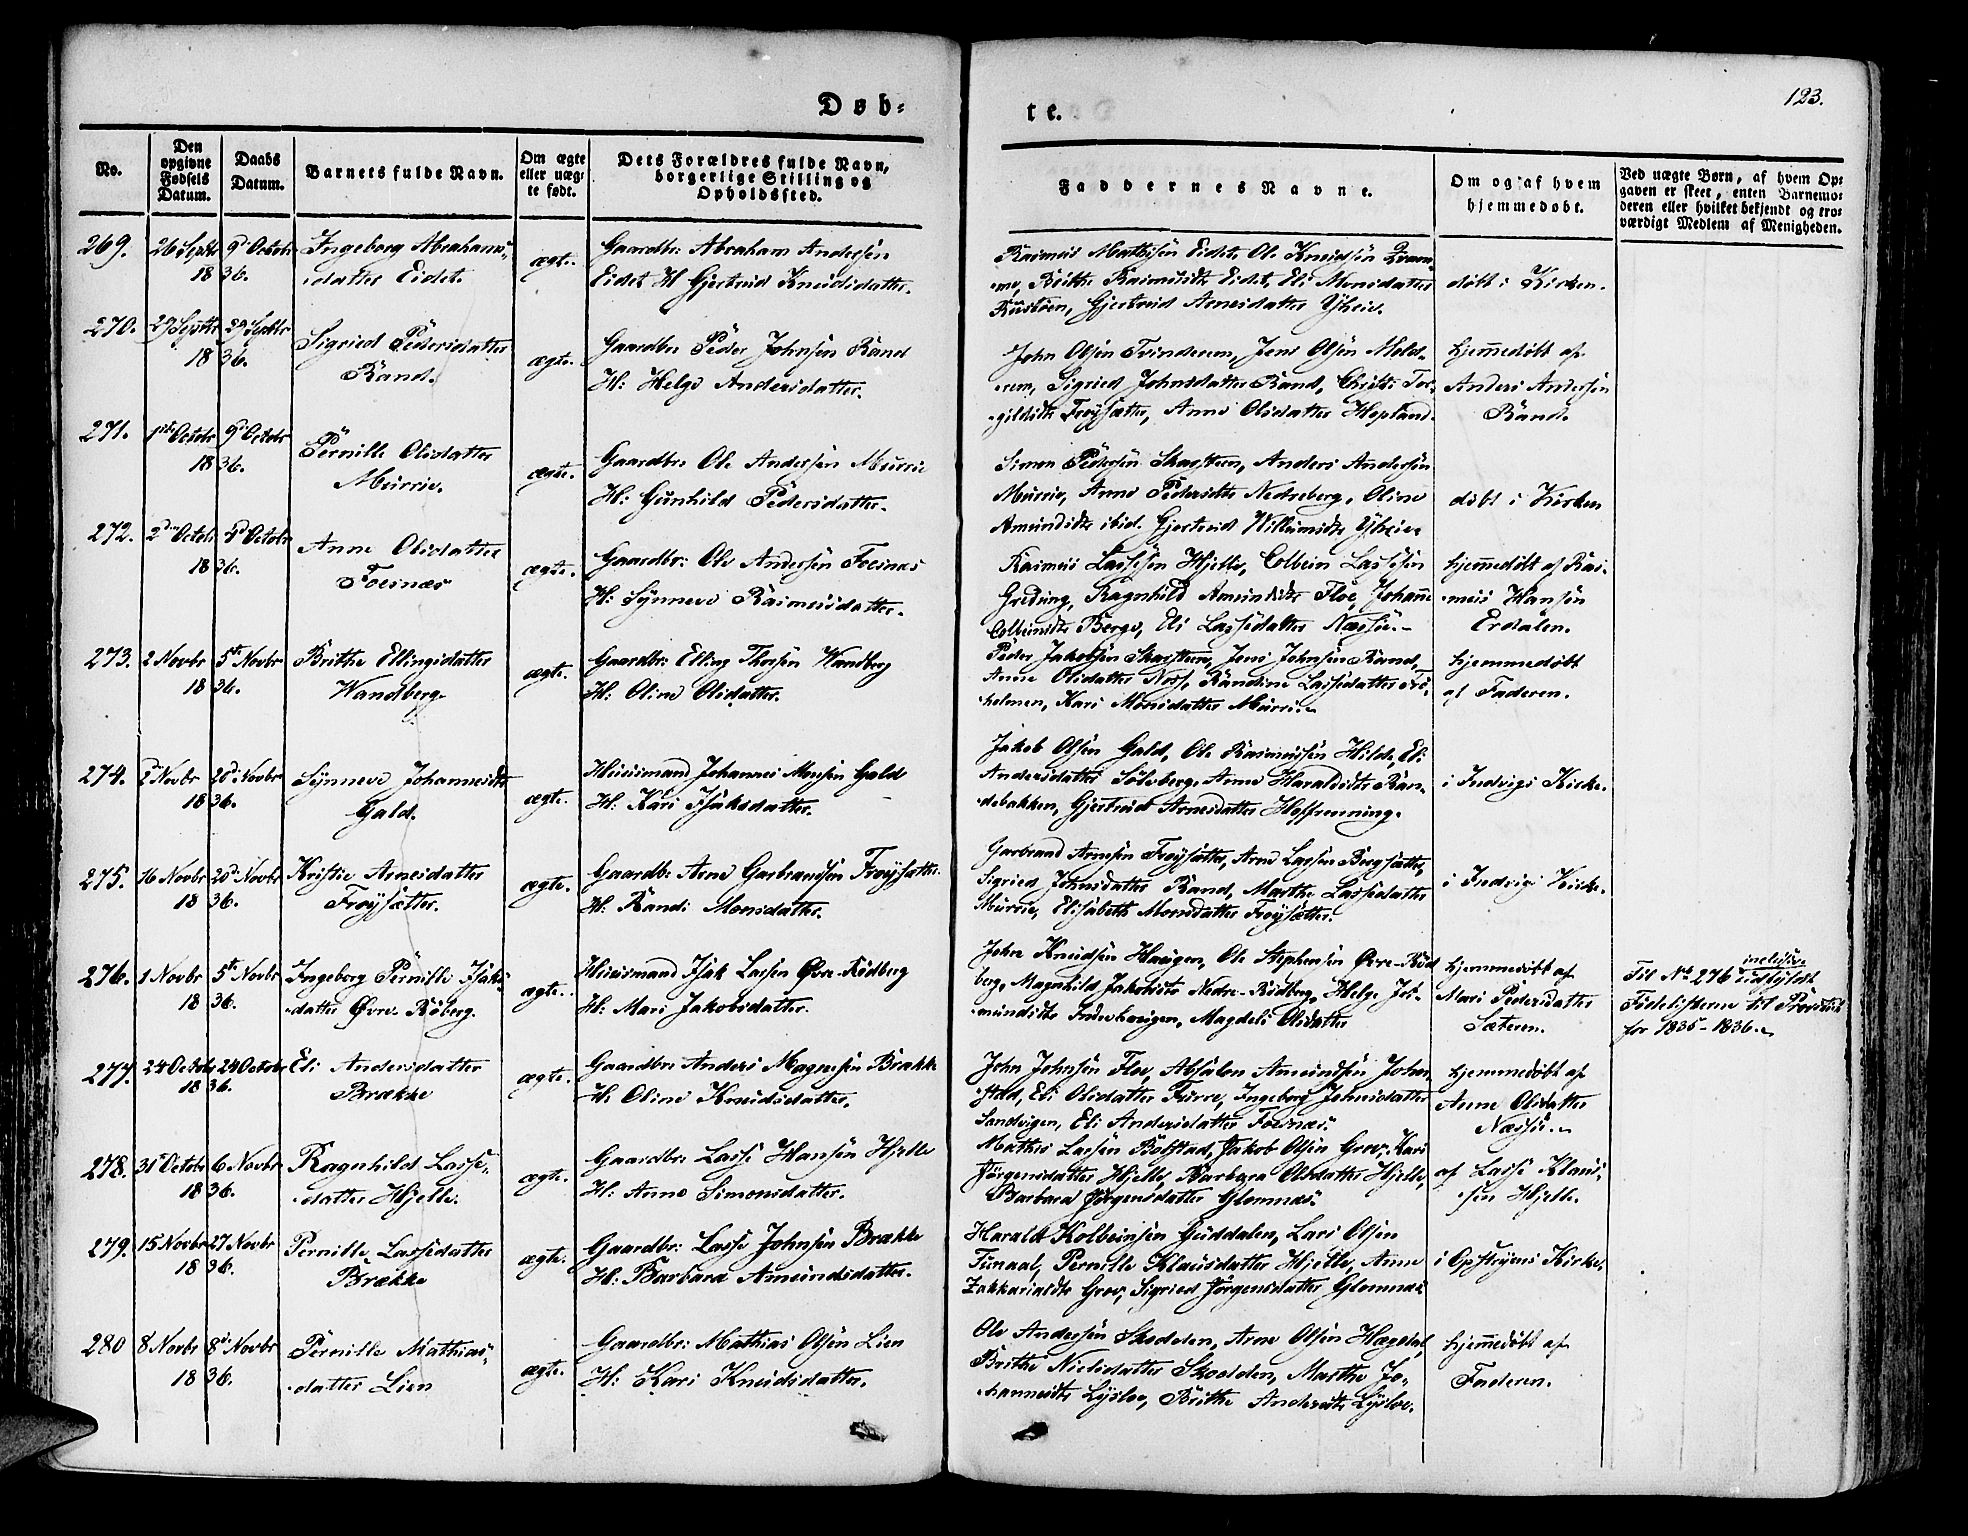 Døb-
te.
123.
No.
Den opgivne Fødsels Datum.
Daabs Datum.
Barnets fulde Navn.
Om ægte eller uægte født.
Dets Forældres fulde Navn, borgerlige Stilling og Opholdssted.
Faddernes Navne.
Om og af hvem hjemmedøbt.
Ved uægte Børn, af hvem Opgaven er skeet, enten Barnemoderen eller hvilket bekjendt og troværdigt Medlem af Menigheden.
269. 26 Septbr 1836. 9de Octobr
Ingeborg Abrahams-
datter Eidet.
ægte.
Gaardbr: Abraham Andersen
Eidet H: Gjertrud Knudsdatter.
Rasmus Mathisen Eidet, Ole Knudsen Qvam-
me, Brithe Rasmusdtr Eidet, Eli Monsdatter
Gjertrud Arnesdatter Yhrie.
døbt i Kirken.
270. 29 Septbr 1836. 29 Septbr
Sigried Pedersdatter
Rand.
ægte.
Gaardbr: Peder Johnsen Rand
H: Helge Andersdatter.
John Olsen Tvinderem, Jens Olsen Mold-
rem, Sigried Johnsdatter Rand, Christi Tor-
gilsdtr Frøysætter, Anne Olsdatter Hopland.
hjemmedøbt af
Anders Andersen
Rand.
271. 1ste Octobr 1836. 9de Octobr
Pernille Olsdatter
Murrie.
ægte.
Gaardbr: Ole Andersen Murrie
H: Gunhild Pedersdatter.
Simon Pedersen Skarsteen, Anders Andersen
Murrie, Anne Pedersdtr Nedreberg, Oline
Amundsdtr ibid. Gjertrud Willumsdtr Yhrie
døbt i Kirken
272. 2den Octobr 1836. Octobr
Anne Olsdatter
Foesnæs
ægte.
Gaardbr: Ole Andersen Foesnæs
H: Synneve Rasmusdatter.
Rasmus Lassesen Hjelle, Colbein Lassesen
Greding, Ragnhild Amundsdtr Floe, Johanne
Colbeinsdtr Berge, Eli Lassedatter Næssie.
hjemmedøbt af Ras-
mus Hansen
Erdalen.
273. 2 Novbr 1836. 5te Novbr
Brithe Ellingsdatter
Wandberg.
ægte.
Gaardbr: Elling Thorsen Wandberg
H: Oline Olsdatter.
Peder Jakobsen Skarsteen, Jens Johnsen Rand,
Anne Olsdatter Noss, Randine Lassedatter
holmen, Kari Monsdatter Murri.
hjemmedøbt
af Faderen.
274. Novbr 1836. 20de Novbr
Synneve Johannesdtr
Gald.
ægte.
Huusmand Johannes Monsen Gald
H: Kari Isaksdatter.
Jakob Olsen Gald, Ole Rasmussen Hilde, Eli
Andersdatter Solsberg, Anne Haraldsdtr Ran-
debakken, Gjertrud Arnesdatter
i Indvigs Kirke.
275. 16 Novbr 1836. 20de Novbr
Kristie Arnesdatter
Frøysætter.
ægte.
Gaardbr: Arne Garbrandsen Frøysætter.
H: Randi Monsdatter.
Garbrand Arnesen Frøysætter, Arne Lassen Bergsætter,
Sigried Johnsdatter Rand, Marthe Lassedatter
Murrie, Elisabeth Monsdatter Frøysætter.
i Indvigs Kirke.
276. 1 Novbr 1836. 5te Novbr
Ingeborg Pernille Isaks-
datter Øvre-Røberg.
ægte.
Huusmand Isak Lassen Øvre-Rødberg
H: Mari Jakobsdatter.
John Knudsen Haugen, Ole Stephensen Øvre-Rød-
berg, Magnhild Jakobsdtr Nedre-Rødberg, Helge
Magdeli Olsdatter
hjemmedøbt af
Mari Pedersdatter
Sæteren.
Til No 276 inclusive
til Provsten
for 1835-1836.
277. 24 Octobr 1836. 24 Octobr
Eli Andersdatter
Brække
ægte.
Gaardbr: Anders Magnesen Brække
H: Oline Knudsdatter.
John Johnsen Floe, Absalon Amundsen John-
stad, Eli Olsdatter Furre, Ingeborg Johnsdatter
Sandvigen, Eli Andersdatter Foesnæs.
hjemmedøbt af
Anne Olsdatter
Næssie.
278. 31te Octobr 1836. 6 Novbr
Ragnhild Lasse-
datter Hjelle.
ægte.
Gaardbr: Lasse Hansen Hjelle
H: Anne Simonsdatter.
Mathis Lassen Bolstad, Jakob Olsen Grov, Kari
Jørgensdatter Hjelle, Barbara Olsdatter Hjelle,
Barbara Jørgensdatter Glomnæs.
af Lasse Klaus-
sen Hjelle.
279. 15 Novbr 1836. 27 Novbr
Pernille Lassedatter
Brække
ægte.
Gaardbr: Lasse Johnsen Brække
H: Barbara Amundsdatter.
Harald Kolbeinsen Guddalen, Lars Olsen
Tunaal, Pernille Klausdatter Hjelle, Anne
Zakkariasdtr Grov, Sigried Jørgensdatter Glomnæs
i Opstryens Kirke.
280 8 Novbr 1836. 8de Novbr
Pernille Mathias-
datter Lien
ægte.
Gaardbr: Mathias Olsen Lien
H: Kari Knudsdatter.
Ole Andersen Skodden, Arne Olsen Hægdal,
Brithe Nielsdatter Skodden, Marthe Jo-
hannesdtr Lysloe, Brithe Andersdtr Lysloe.
hjemmedøbt af
Faderen.